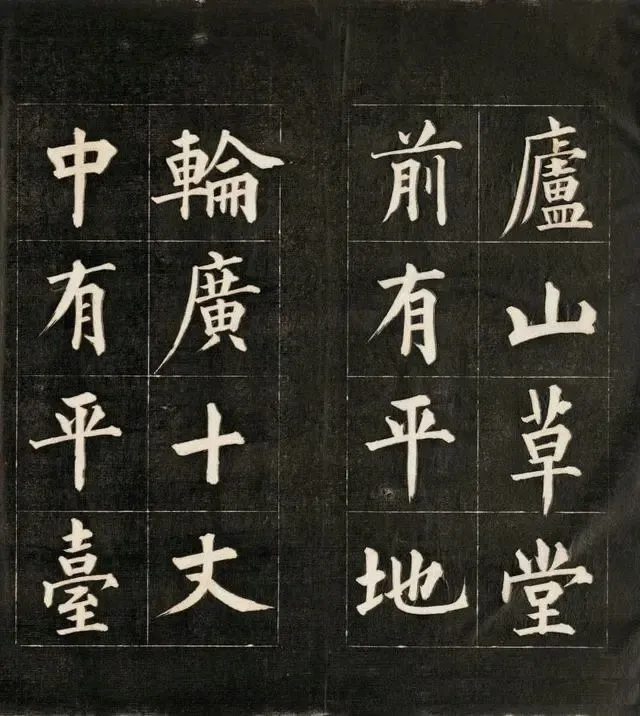 廬山草堂
前有平地
輪廣十丈
中有平臺